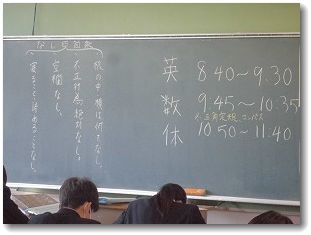 なし五箇条
机の中・横は何もなし。
不正行為絶対なし。
空欄なし。
寝ること・諦めることなし。
英 8:40～9:30
数 9:45～10:35
※三角定規、コンパス
休 10:50～11:40